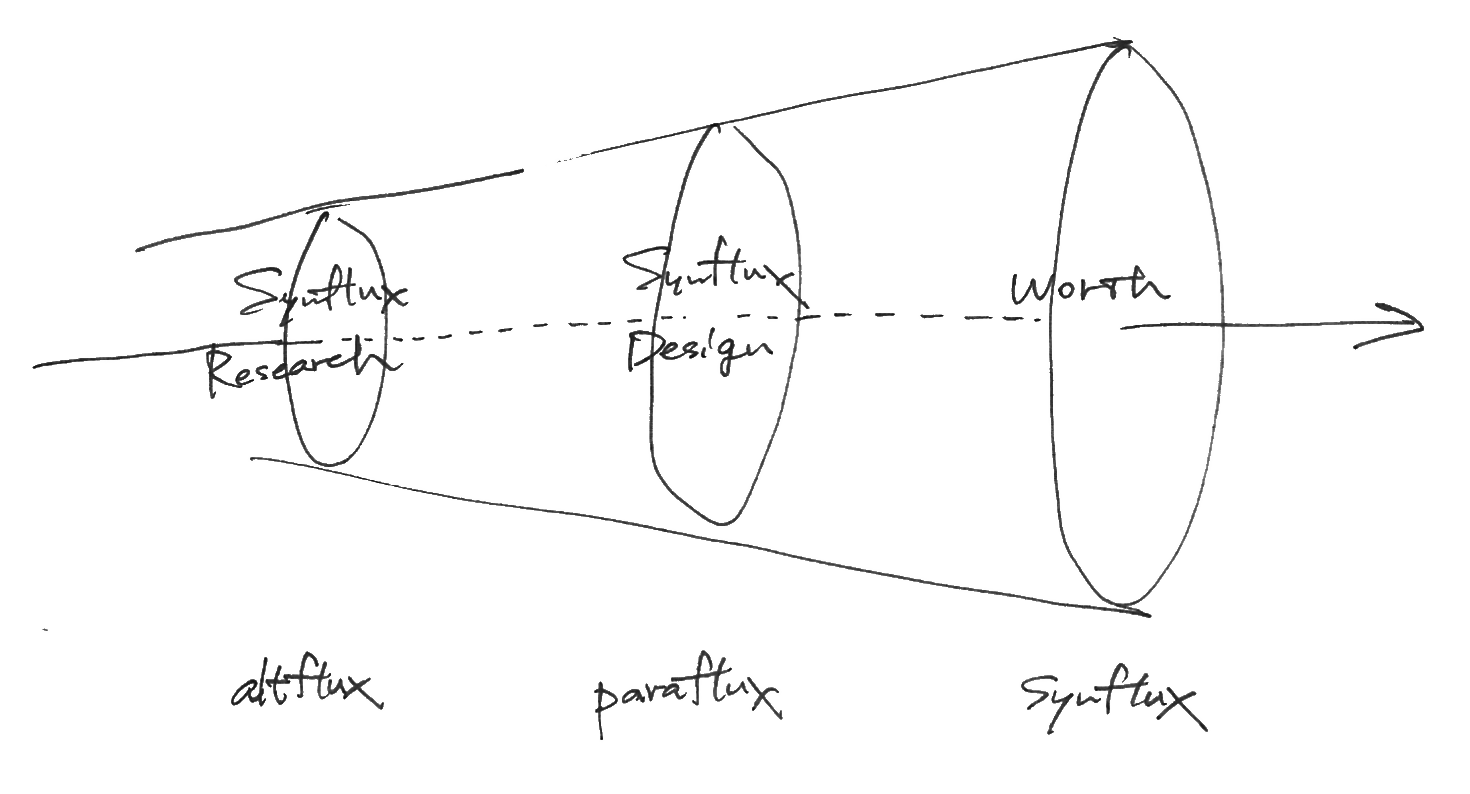 Synflux
Research
Synflux
Design
Worth
altflux
paraflux
Synflux